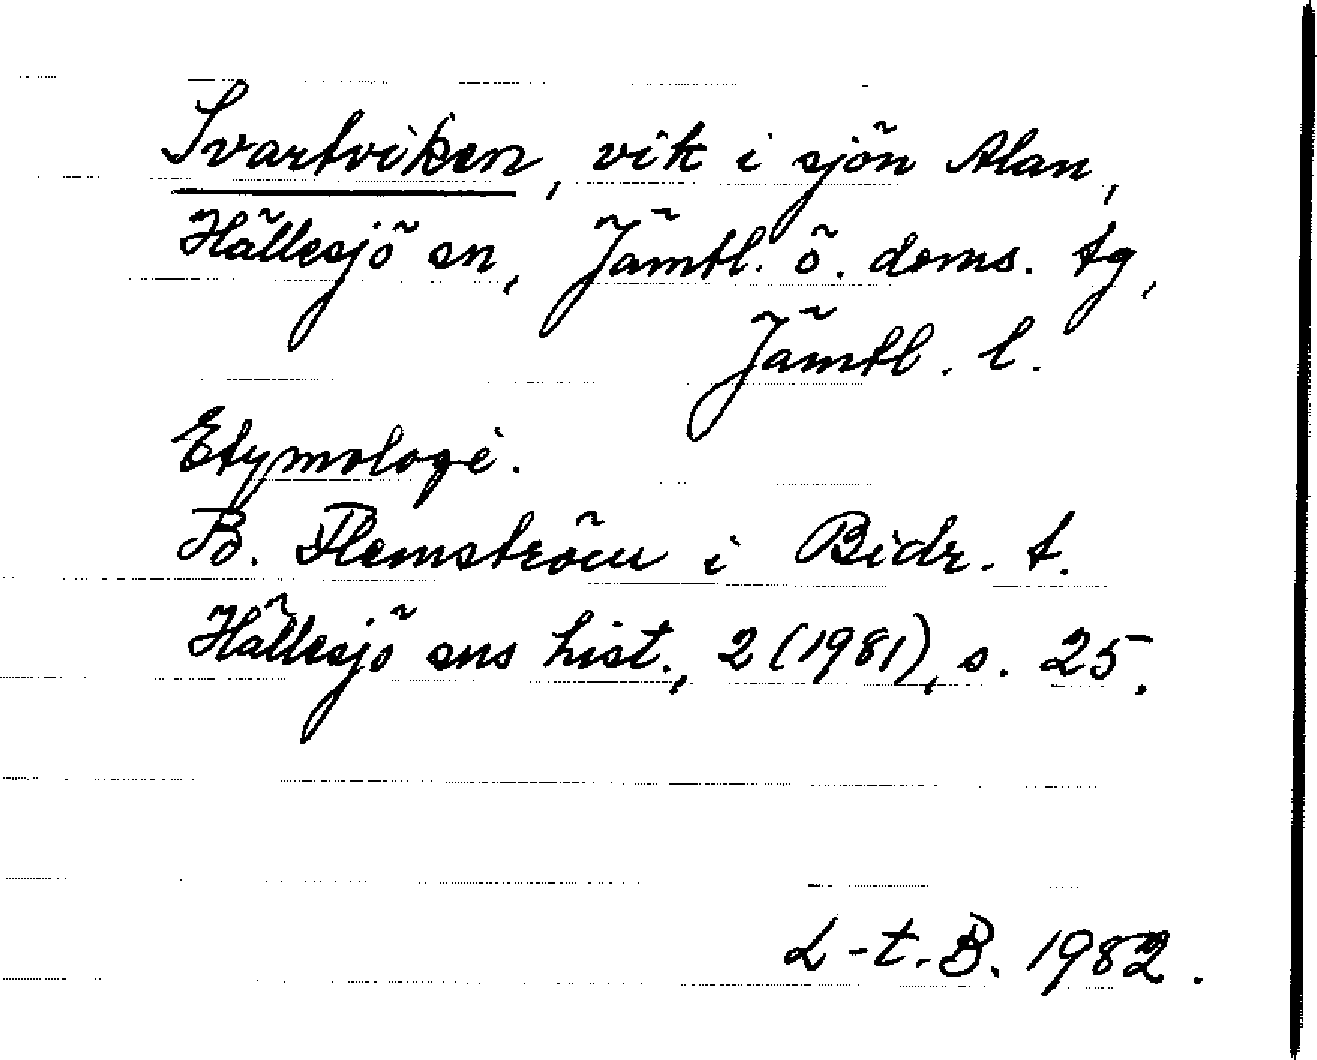 Svartviken, vik i sjön Alan,
Hällesjö sn, Jämtl. ö. doms. tg,
Jämtl. l.
Etymologi.
B. Flemström i Bidr. t.
Hällesjö sns hist., 2 (1981), s. 25.
L-t. B. 1982.